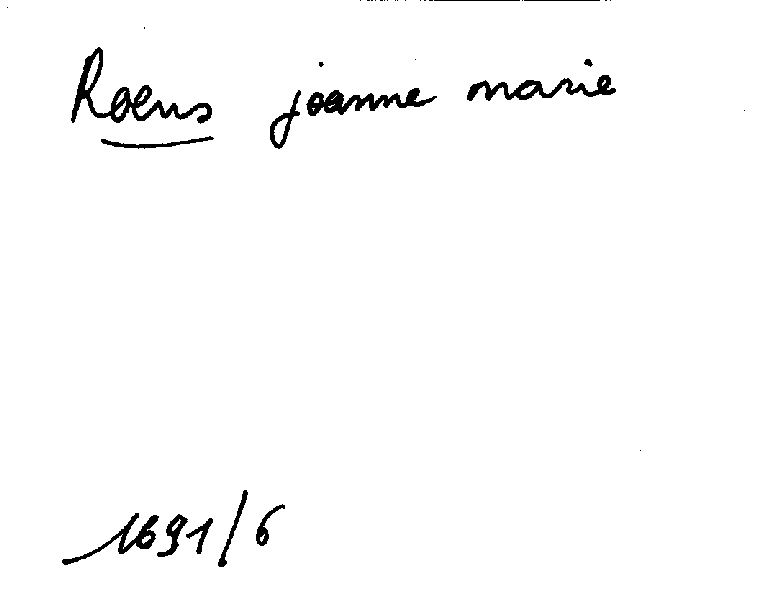 Roens joanne marie
1691/6